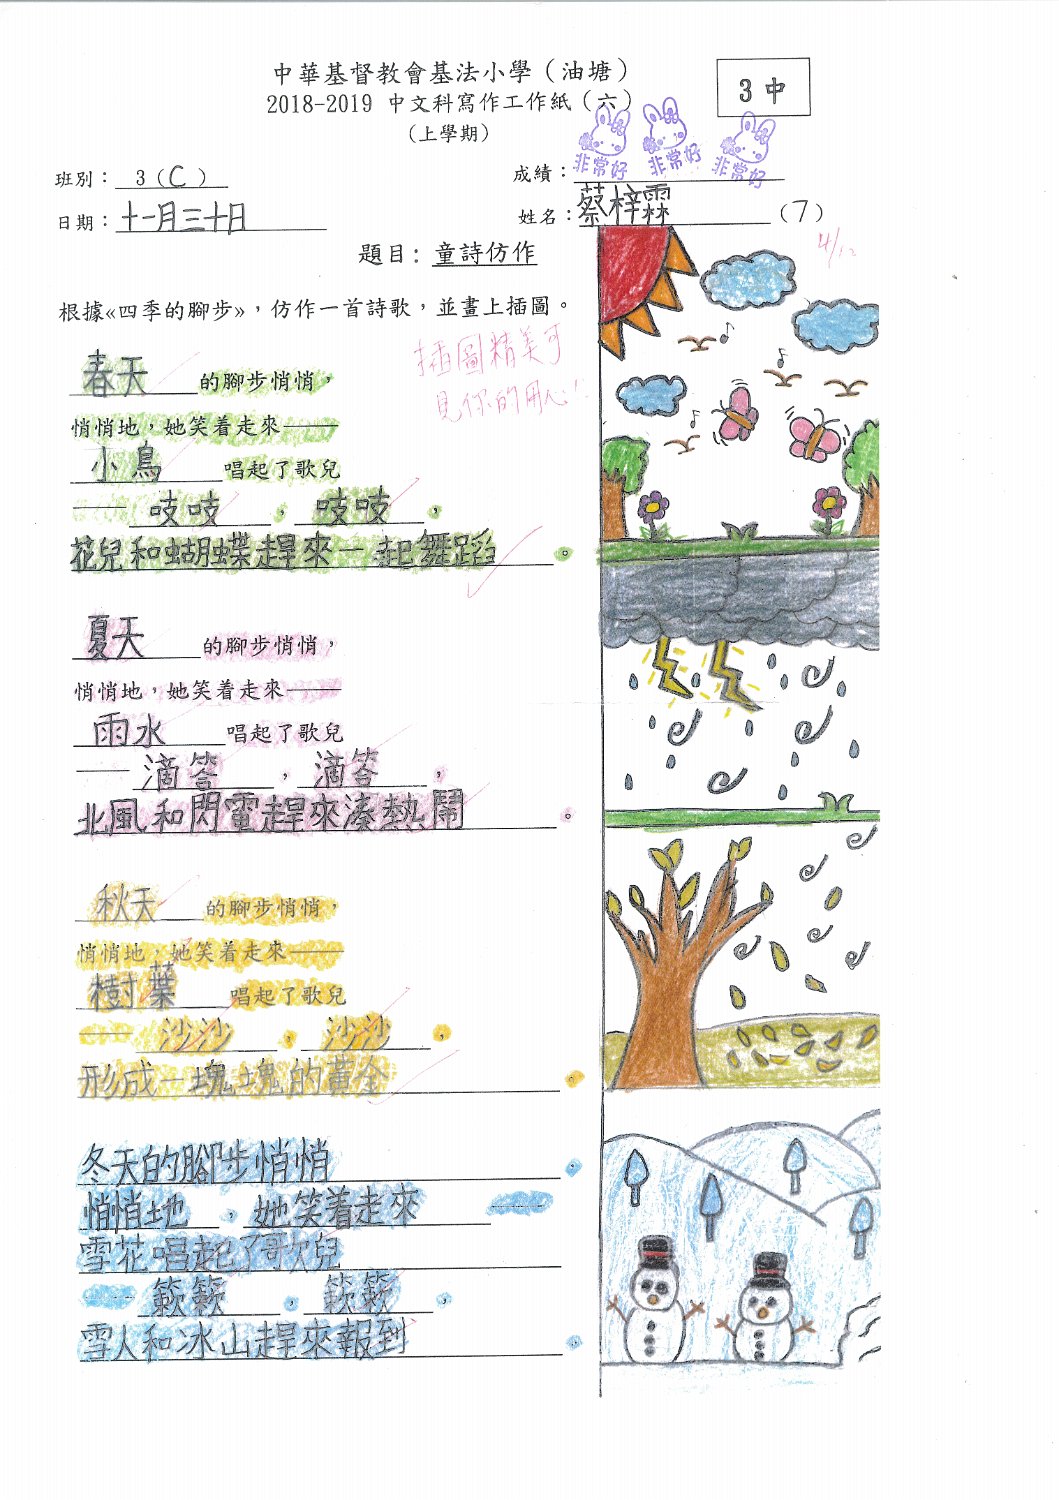 中華基督教會基法小學（油塘）
3中
2018-2019 中文科寫作工作紙（六）
（上學期）
非常好 非常好 非常好
班別：3（C）
成績：
日期：十一月三十日
姓名：蔡梓霖（7）
4/12
題目：童詩仿作
根據«四季的腳步»，仿作一首詩歌，並畫上插圖。
插圖精美可
見你的用心！
春天的腳步悄悄，
悄悄地，她笑着走來——
小鳥唱起了歌兒
——吱吱，吱吱，
花兒和蝴蝶趕來一起舞蹈。
夏天的腳步悄悄，
悄悄地，她笑着走來——
雨水唱起了歌兒
——滴答，滴答，
北風和閃電趕來湊熱鬧。
秋天的腳步悄悄，
悄悄地，她笑着走來——
樹葉唱起了歌兒
——沙沙，沙沙，
形成一塊塊的黃金。
冬天的腳步悄悄，
悄悄地，她笑着走來——
雪花唱起了歌兒
——簌簌，簌簌，
雪人和冰山趕來報到。